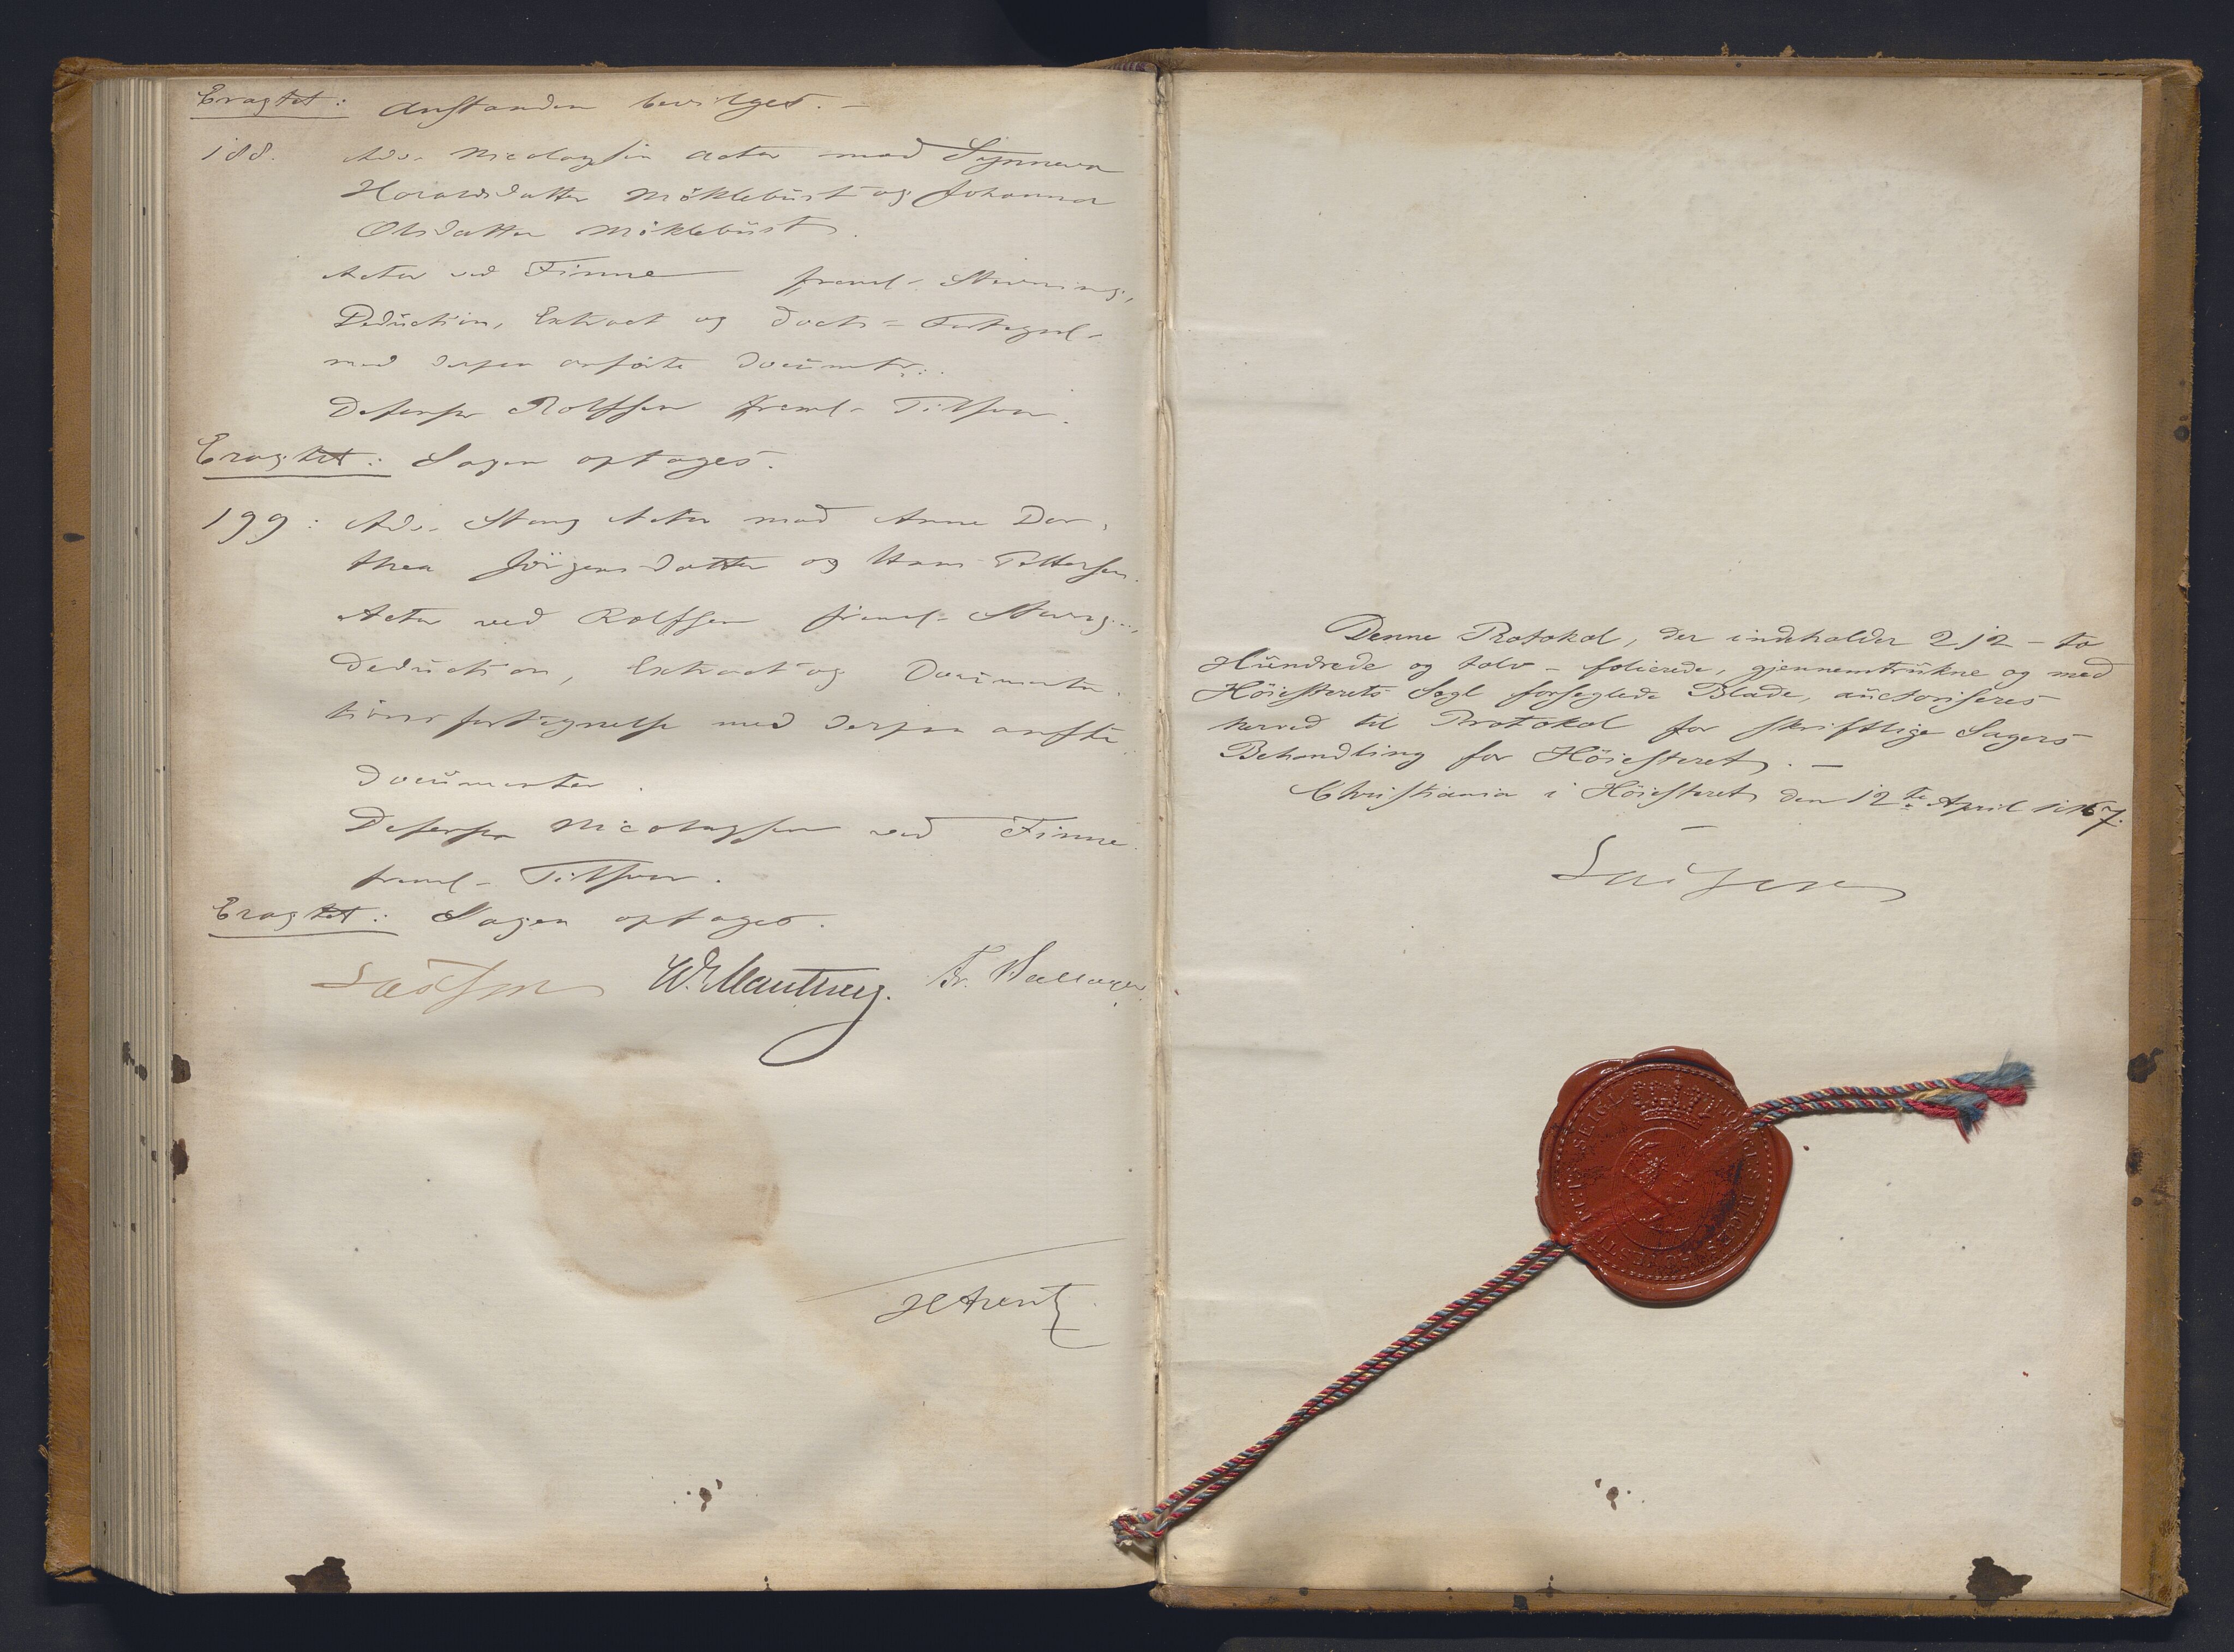 Eragtet: Anstanden bevilget. –
188. Adv. Nicolaysen Actor mod Synneva
Haraldsdatter Möklebüst og Johanna
Olsdatter Möklebüst.
Actor ved Finne freml. Stevning,
Deduction, Extract og Doct.- Fortegnel-
med derpaa anförte Documtr.
Defensor Rolfsen freml. Tilsvar.
Eragtet: Sagen optages.
199: Adv. Stang Actor mod Anne Dor-
thea Jörgensdatter og Hans Pettersen.
Actor ved Rolfsen freml. Stevng.,
Deduction, Extract og Documenta-
tionsfortegnelse med derpaa anfte
Documenter.
Defensor Nicolaysen ved Finne
freml. Tilsvar.
Eragtet: Sagen optages.
Lasson W. Mantheÿ. Fr. Hallager
H Arentz
Denne Protokol, der indeholder 212 – to
Hündrede og tolv – folierede, gjennemtrükne og med
Höiesterets Segl forseglede Blade, aüctoriseres
herved til Protokol for skriftlige Sagers
Behandling for Höiesteret. –
Christiania i Höiesteret den 12te April 1867.
Lasson
NORGES RIGES HÖIESTERETS SEIGL